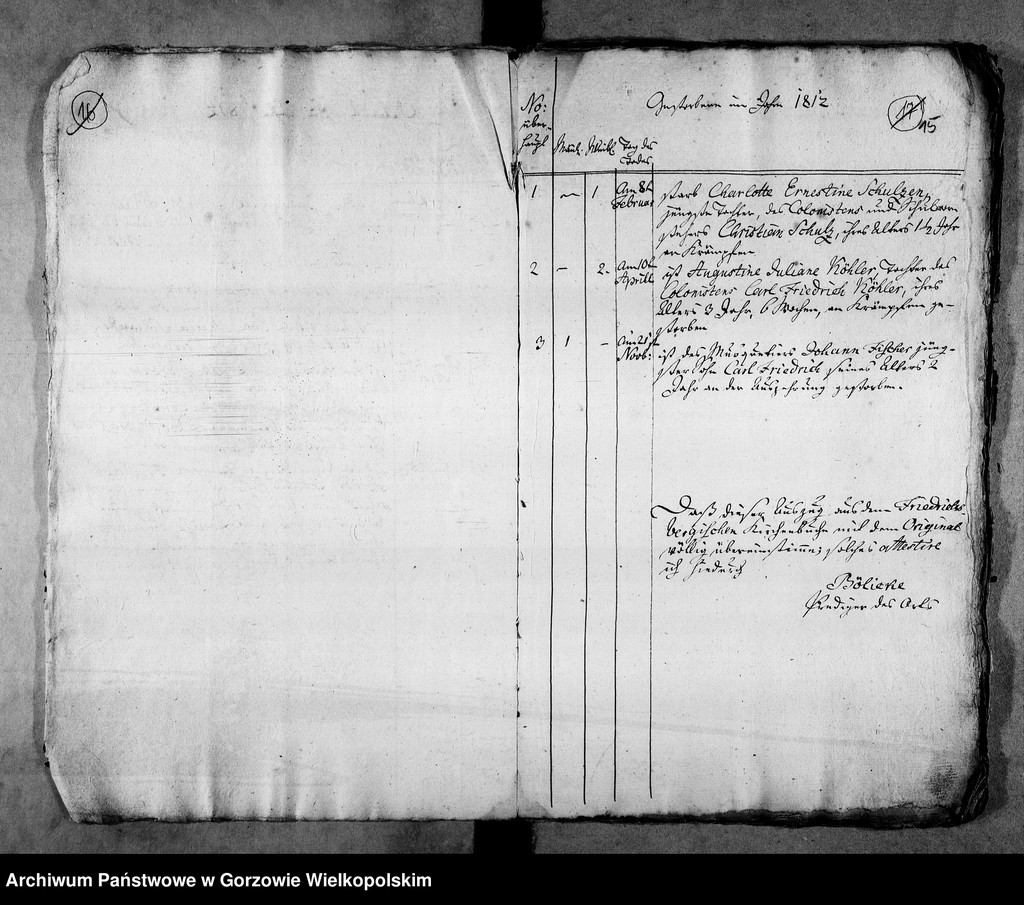 16
17
15
Gestorbene im Jahre 1812
No:
über-
haupt
Männl. Weibl. Tag des
Todes
1 – 1 Am 8t
Februar
starb Charlotte Ernestine Schulzen,
jüngste Tochter, des Colonistens und
Christian Schulz, ihres Alters 1 1/2 Jahr
an Krämpfen
2 – 2. Am 10t
Aprill
ist Augustine Juliane Köhler, Tochter des
Colonistens Carl Friedrich Köhler, ihres
Alters 3 Jahr, 6 Wochen, an Krämpfen ge-
storben
3 1 – Am 21st
Novb:
ist des Musquetiers Johann Fischer jüng-
ster Sohn Carl Friedrich seines Alters 2
Jahr an der Auszehrung gestorben.
Daß dieser Auszug aus dem Friedrichs
bergischen Kirchenbuche mit dem Original
völlig übereinstimme; solches attestire
ich hiedurch
Bölicke
Prediger des Orts
Archiwum Państwowe w Gorzowie Wielkopolskim